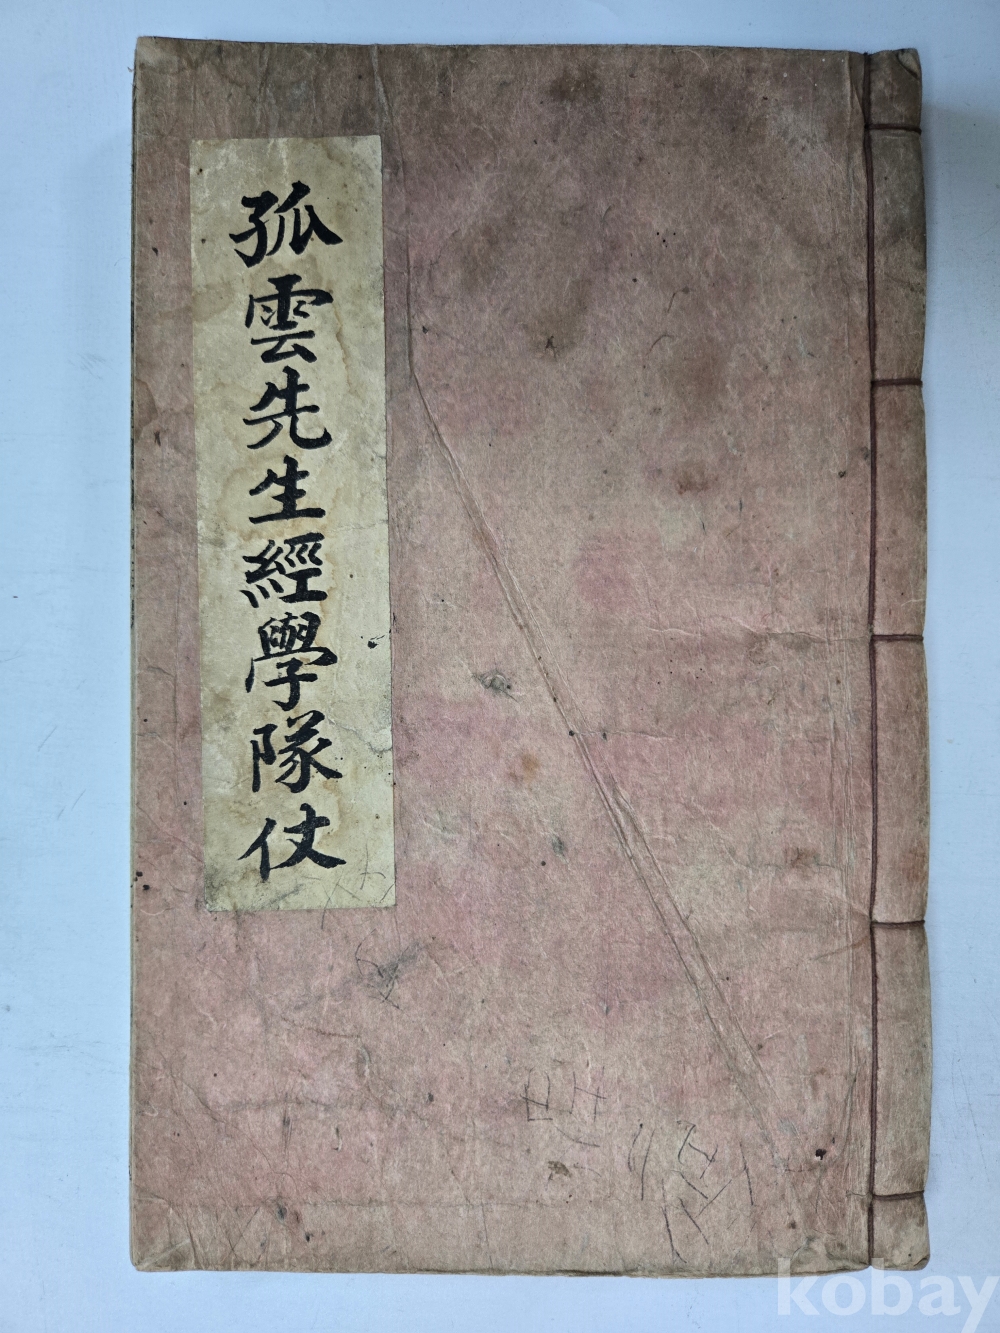 孤雲先生經學隊仗
kobay